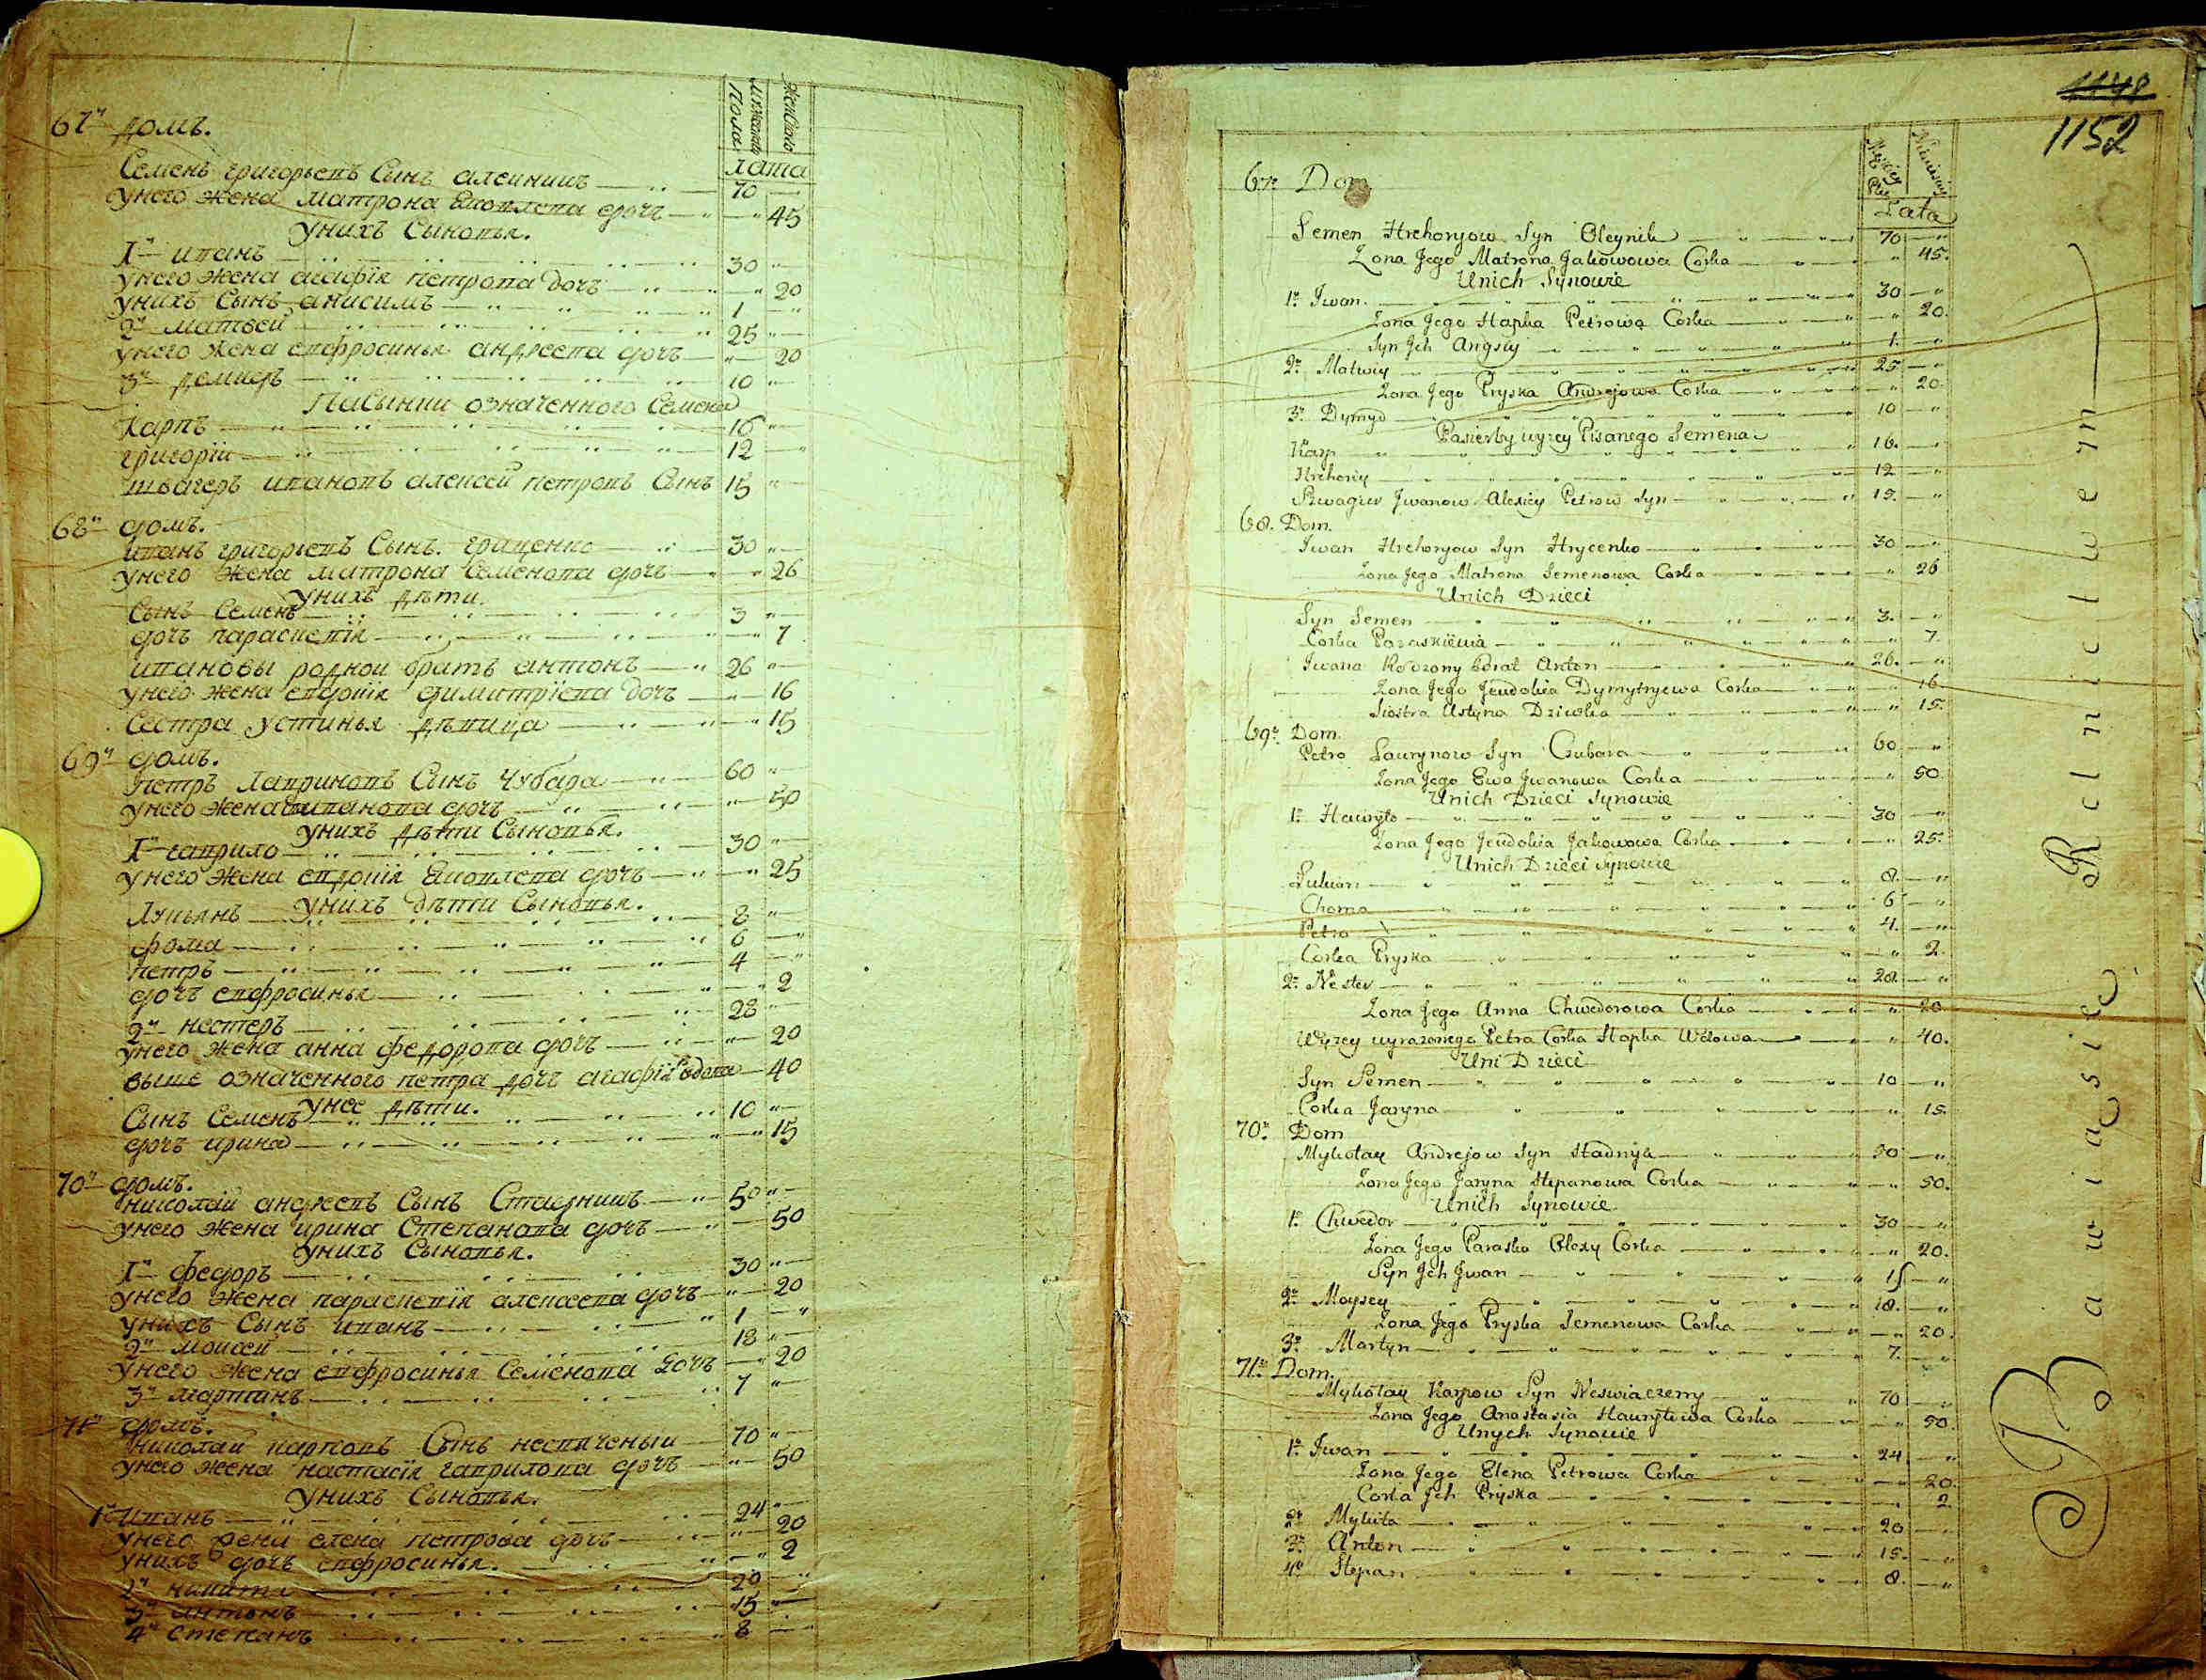 Мужеска Пола
Женскаго
Лѣта
67й домъ.
Семенъ григорьевъ Сынъ алейникъ 70
унего жена матрона Яковлева дочъ 45
унихъ Сыновья.
1й иванъ 30
унего жена агафія петрова дочъ 20
унихъ Сынъ анисимъ 1
2й матвей 25
унего жена евфросинья андреева дочъ 20
3й демидъ 10
Пасынки означенного Семена
Карпъ 16
григорій 12
швагеръ ивановъ алексей петровъ Сынъ 15
68й домъ.
иванъ григорьевъ Сынъ. гриценко 30
унего жена матрона Семенова дочъ 26
унихъ дѣти.
Сынъ Семенъ 3
дочъ параскевія 7
ивановы родной братъ антонъ 26
унего жена евдокія димитріева дочъ 16
Сестра устинья дѣвица 15
69й домъ.
петръ лавриновъ Сынъ Чубара 60
унего жена ева иванова дочъ 50
унихъ дѣти Сыновья.
1й гаврило 30
унего жена евдокія Яковлева дочъ 25
унихъ дѣти Сыновья.
Лукьянъ 8
фома 6
петръ 4
дочъ евфросинья 2
2й нестеръ 28
унего жена анна федорова дочъ 20
выше означенного петра дочъ агафія вдова 40
унее дѣти.
Сынъ Семенъ 10
дочъ ирина 15
70й домъ.
николай андреевъ Сынъ Стадникъ 50
унего жена ирина Степанова дочъ 50
унихъ Сыновья.
1й федоръ 30
унего жена параскевія алексеева дочъ 20
унихъ Сынъ иванъ 1
2й моисей 18
унего жена евфросинья Семенова дочъ 20
3й мартинъ 7
71й домъ.
николай карповъ Сынъ несвяченый 70
унего жена настасія гаврилова дочъ 50
унихъ Сыновья.
1й иванъ 24
унего жена елена петрова дочъ 20
унихъ дочъ евфросинья. 2
2й никита 20
3й антонъ 15
4й степанъ 8
1148
1152
Męzkiey Płci
Niewiesciey
Lata
67. Dom
Semen Hrehoryow Syn Oleynik 70
Zona Jego Matrona Jakowowa Corka 45.
Unich Synowie
1o Jwan. 30
Zona Jego Hapka Petrowa Corka 20.
Syn Jch Anysiy 1.
2o Matwiy 25
Zona Jego Pryska Andrejowa Corka 20
3o Dymyd 10
Pasierby wyzey Pisanego Semena
Karp 16.
Hrehoriy 12
Szwagier Jwanow Alexiey Petrow Syn 15.
68. Dom.
Jwan Hrehoryow Syn Hrycenko 30
Zona Jego Matrona Semenowa Corka 26
Unich Dzieci
Syn Semen 3.
Corka Paraskiewia 7
Jwana Rodzony Brat Anton 26.
Zona Jego Jewdokia Dymytryewa Corka 16
Siostra Ustyna Dziwka 15.
69o Dom.
Petro Laurynow Syn Czubara 60
Zona Jego Ewa Jwanowa Corka 50.
Unich Dzieci Synowie
1o Hawryło 30
Zona Jego Jewdokia Jakowowa Corka 25.
Unich Dzieci Synowie
Łukian 8.
Choma 6
Petro 4.
Corka Pryska 2
2o Nester 28.
Zona Jego Anna Chwedorowa Corka 20
Wyzey wyrazonego Petra Corka Hapka Wdowa 40.
Uni Dzieci
Syn Semen 10
Corka Jaryna 15.
70o Dom
Mykołay Andrejow Syn Stadnyk 50
Zona Jego Jaryna Stepanowa Corka 50.
Unich Synowie
1o Chwedor 30
Zona Jego Paraska Olexy Corka 20.
Syn Jch Jwan 1
2o Moysey 18.
Zona Jego Pryska Semenowa Corka 20.
3o Martyn 7.
71o Dom.
Mykołay Karpow Syn Neswiaczeny 70
Zona Jego Anastasia Hawryłowa Corka 50
Unych Synowie
1o Jwan 24
Zona Jego Elena Petrowa Corka 20.
Corka Jch Pryska 2
2o Mykita 20
3o Anton 15.
4o Stepan 8.